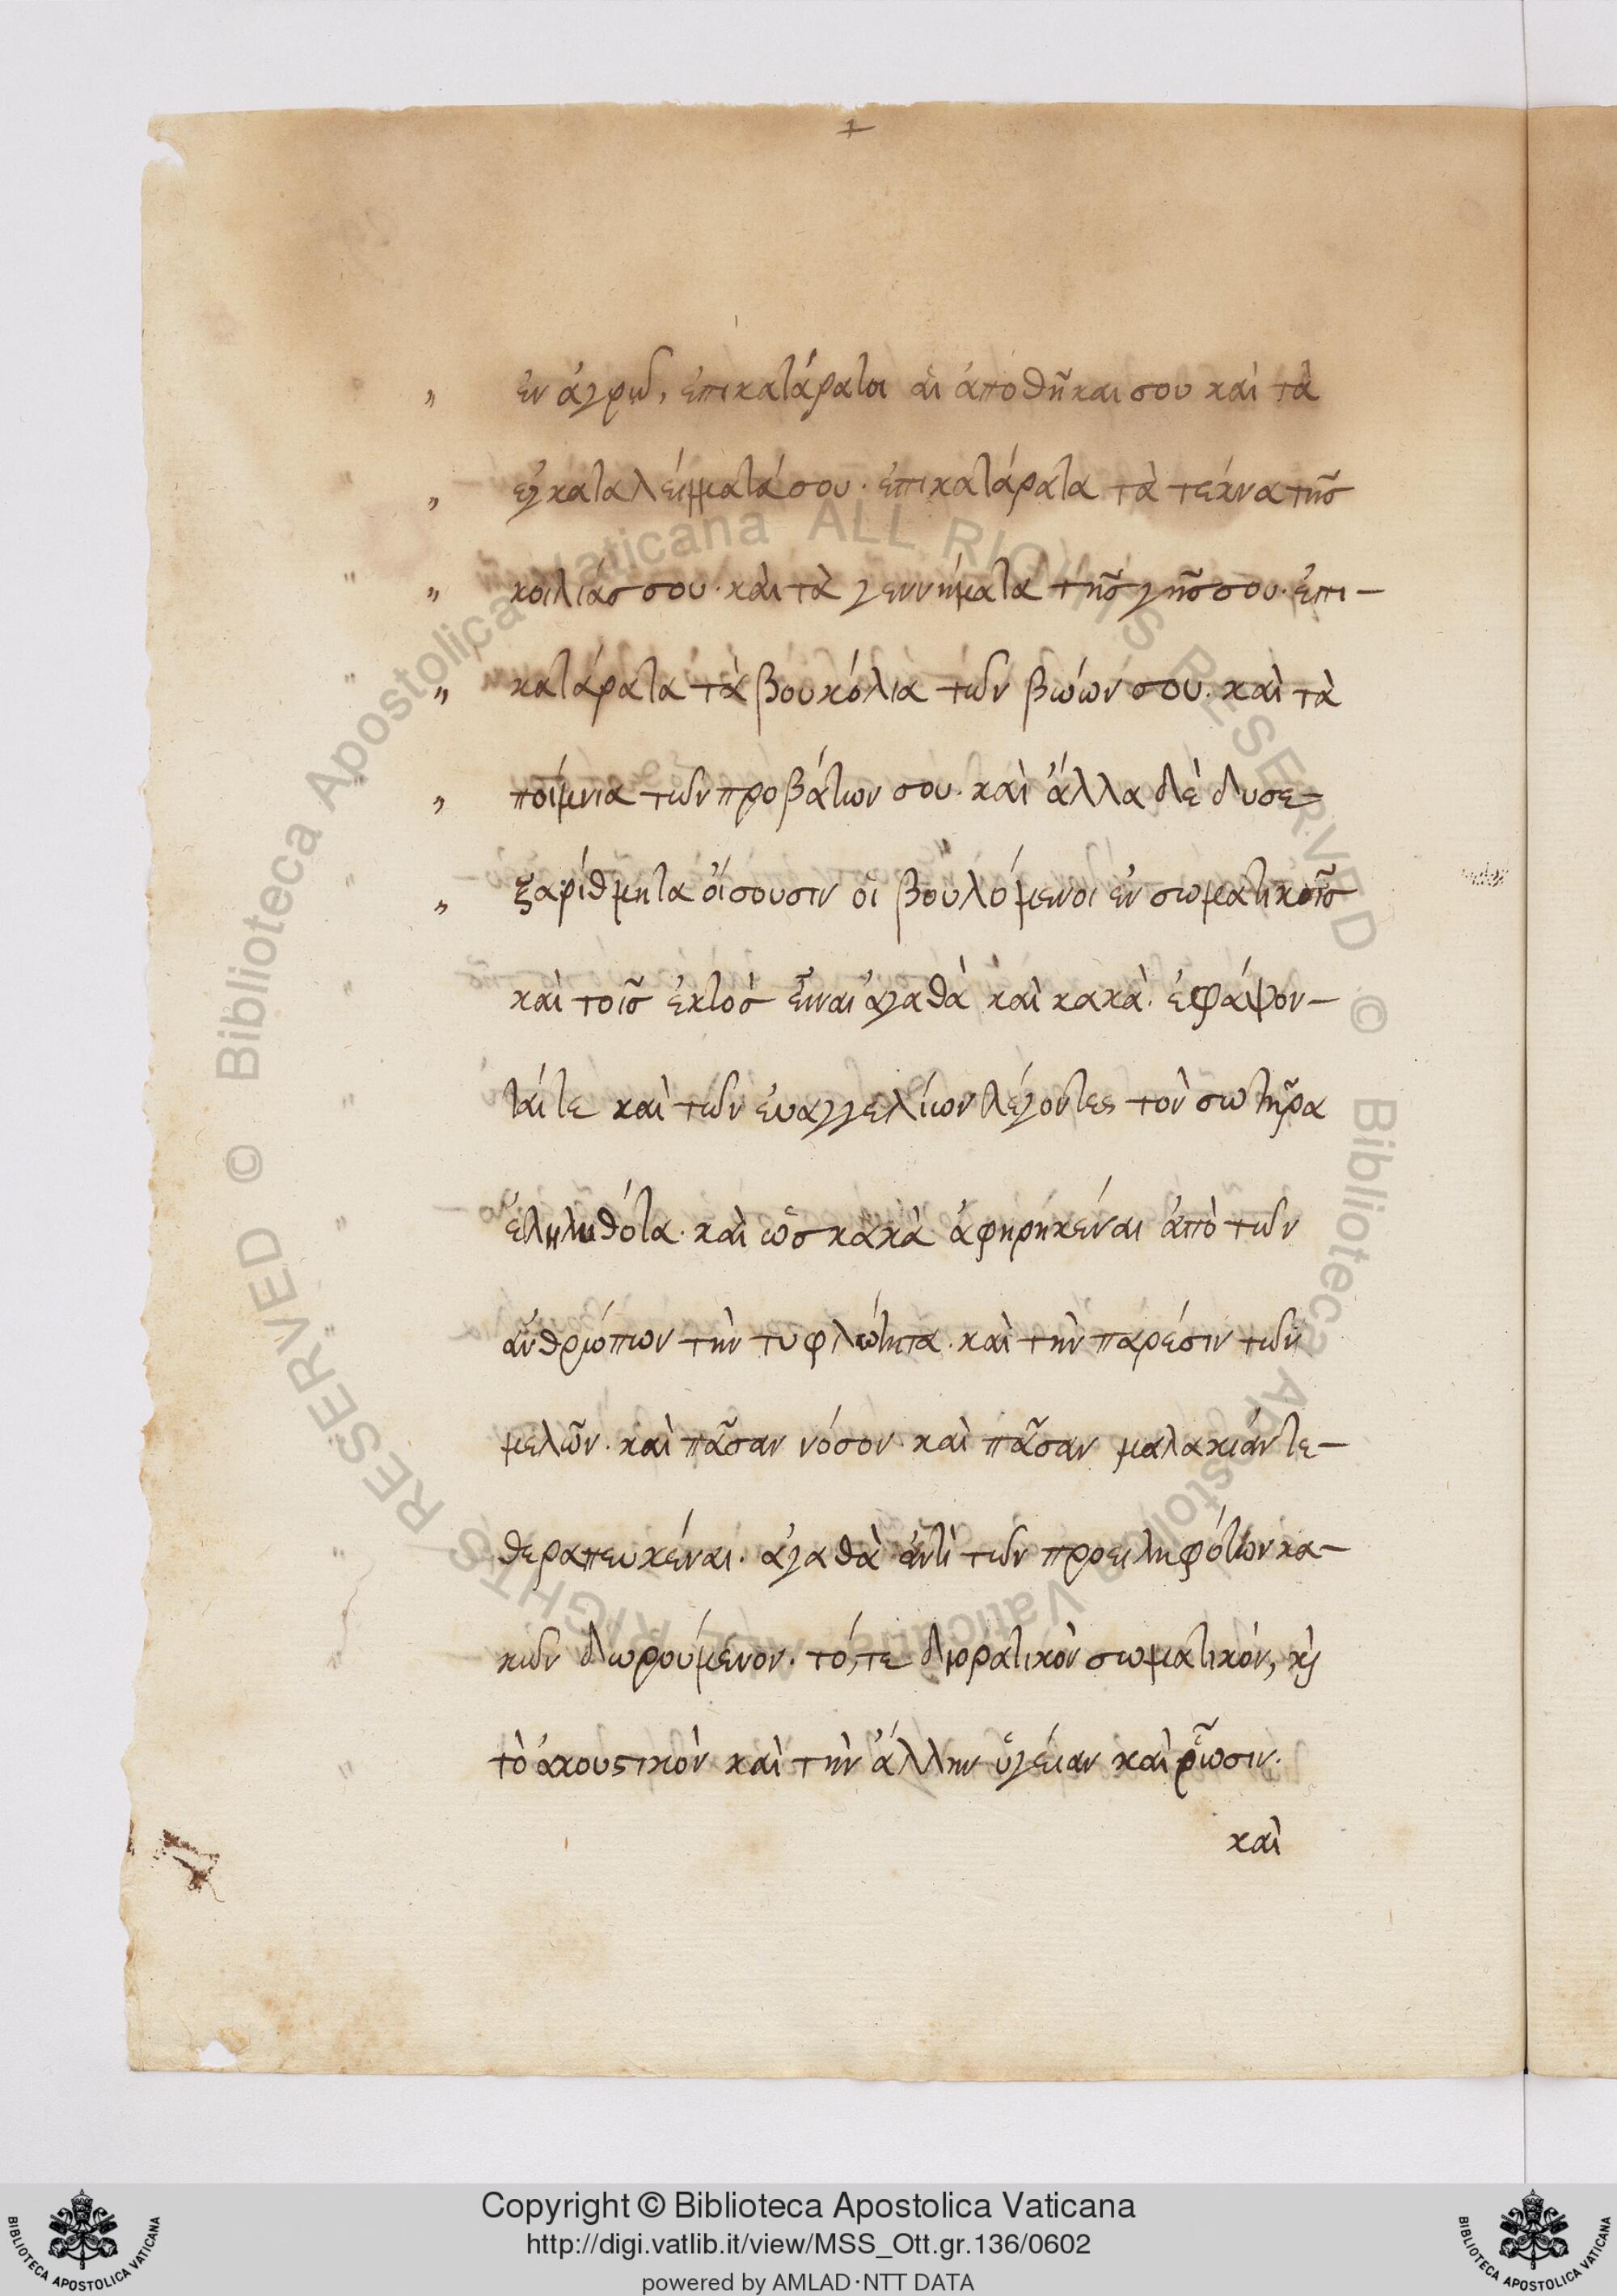 +
„ ἐν ἀγρῷ, ἐπικατάρατοι αἱ ἀποθῆκαι σου καὶ τὰ
„ ἐγκαταλείμματά σου · ἐπικατάρατα τὰ τέκνα τῆς
„ κοιλιάς σου · καὶ τὰ γεννήματα τῆς γῆς σου · ἐπι–
„ κατάρατα τὰ βουκόλια τῶν βοών σου · καὶ τὰ
„ ποίμνια τῶν προβάτων σου · καὶ ἄλλα δὲ δυσε–
„ ξαρίθμητα οἴσουσιν οἱ βουλόμενοι ἐν σωματικοῖς
καὶ τοῖς ἐκτὸς εἶναι ἀγαθὰ καὶ κακὰ · ἐφάψον–
ταί τε καὶ τῶν εὐαγγελίων λέγοντες τὸν σωτῆρα
ἐληλυθότα · καὶ ὡς κακὰ ἀφῃρηκέναι ἀπὸ τῶν
ἀνθρώπων τὴν τυφλώτητα · καὶ τὴν παρέσιν τῶν
μελῶν · καὶ πᾶσαν νόσον · καὶ πᾶσαν μαλακιάν τε–
θεραπευκέναι · ἀγαθὰ ἀντὶ τῶν προειληφότων κα–
κῶν δωρούμενον · τό, τε διορατικὸν σωματικόν, κὶ
τὸ ἀκουστικὸν καὶ τὴν ἄλλην ὑγείαν καὶ ῥῶσιν ·
καὶ
© Biblioteca Apostolica Vaticana ALL RIGHTS RESERVED © Biblioteca Apostolica Vaticana ALL RIGHTS RESERVED
BIBLIOTECA APOSTOLICA VATICANA
Copyright © Biblioteca Apostolica Vaticana
http://digi.vatlib.it/view/MSS_Ott.gr.136/0602
powered by AMLAD·NTT DATA
BIBLIOTECA APOSTOLICA VATICANA